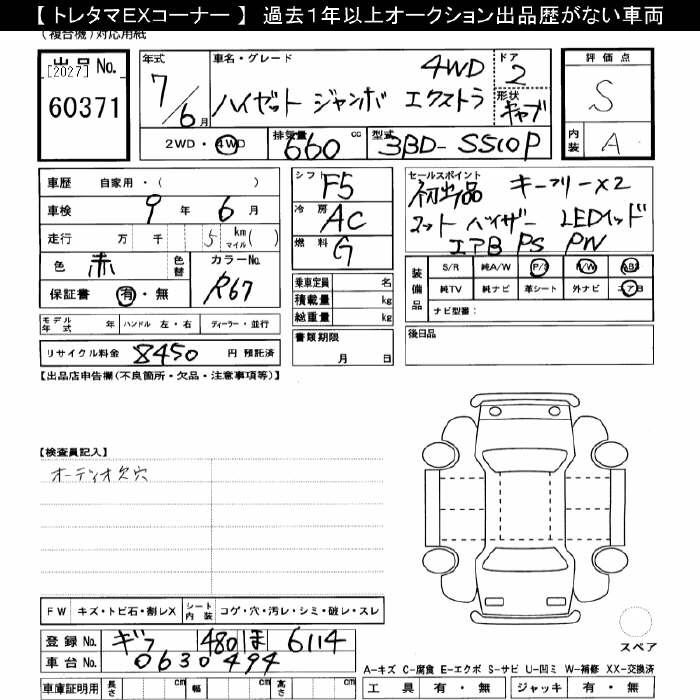 【 トレタマEXコーナー 】 過去1年以上オークション出品歴がない車両
(複合機)対応用紙
出品No.
[2027]
60371
年式
7/6月
車名・グレード
4WD
ハイゼット ジャンボ エクストラ
ドア
2
形状
キャブ
2WD・4WD
排気量
660 cc
型式
3BD-S510P
評価点
S
内装
A
車歴 自家用・( )
車検 9年 6月
走行 万 千 5 km マイル( )
色 赤 色替
カラーNo.
R67
保証書 有・無
シフト F5
冷房 AC
燃料 G
乗車定員 名
積載量 kg
総重量 kg
書類期限
月 日
セールスポイント
初出品 キーフリー×2
マット バイザー LEDヘッド
エアB PS PW
装備品
S/R 純A/W P/S P/W ABS
純TV 純ナビ 革シート 外ナビ エアB
ナビ型番:
後日品
モデル年式 年 ハンドル 左・右 ディーラー・並行
リサイクル料金 8450 円 預託済
【出品店申告欄(不良箇所・欠品・注意事項等)】
【検査員記入】
オーディオ欠穴
FW キズ・トビ石・割レX シート内装 コゲ・穴・汚レ・シミ・破レ・スレ
登録No. ギフ 480 ほ 6114
車台No. 0630494
車庫証明用 長さ cm 幅 cm 高さ cm
スペア
A-キズ C-腐食 E-エクボ S-サビ U-凹ミ W-補修 XX-交換済
工具 有・無 ジャッキ 有・無